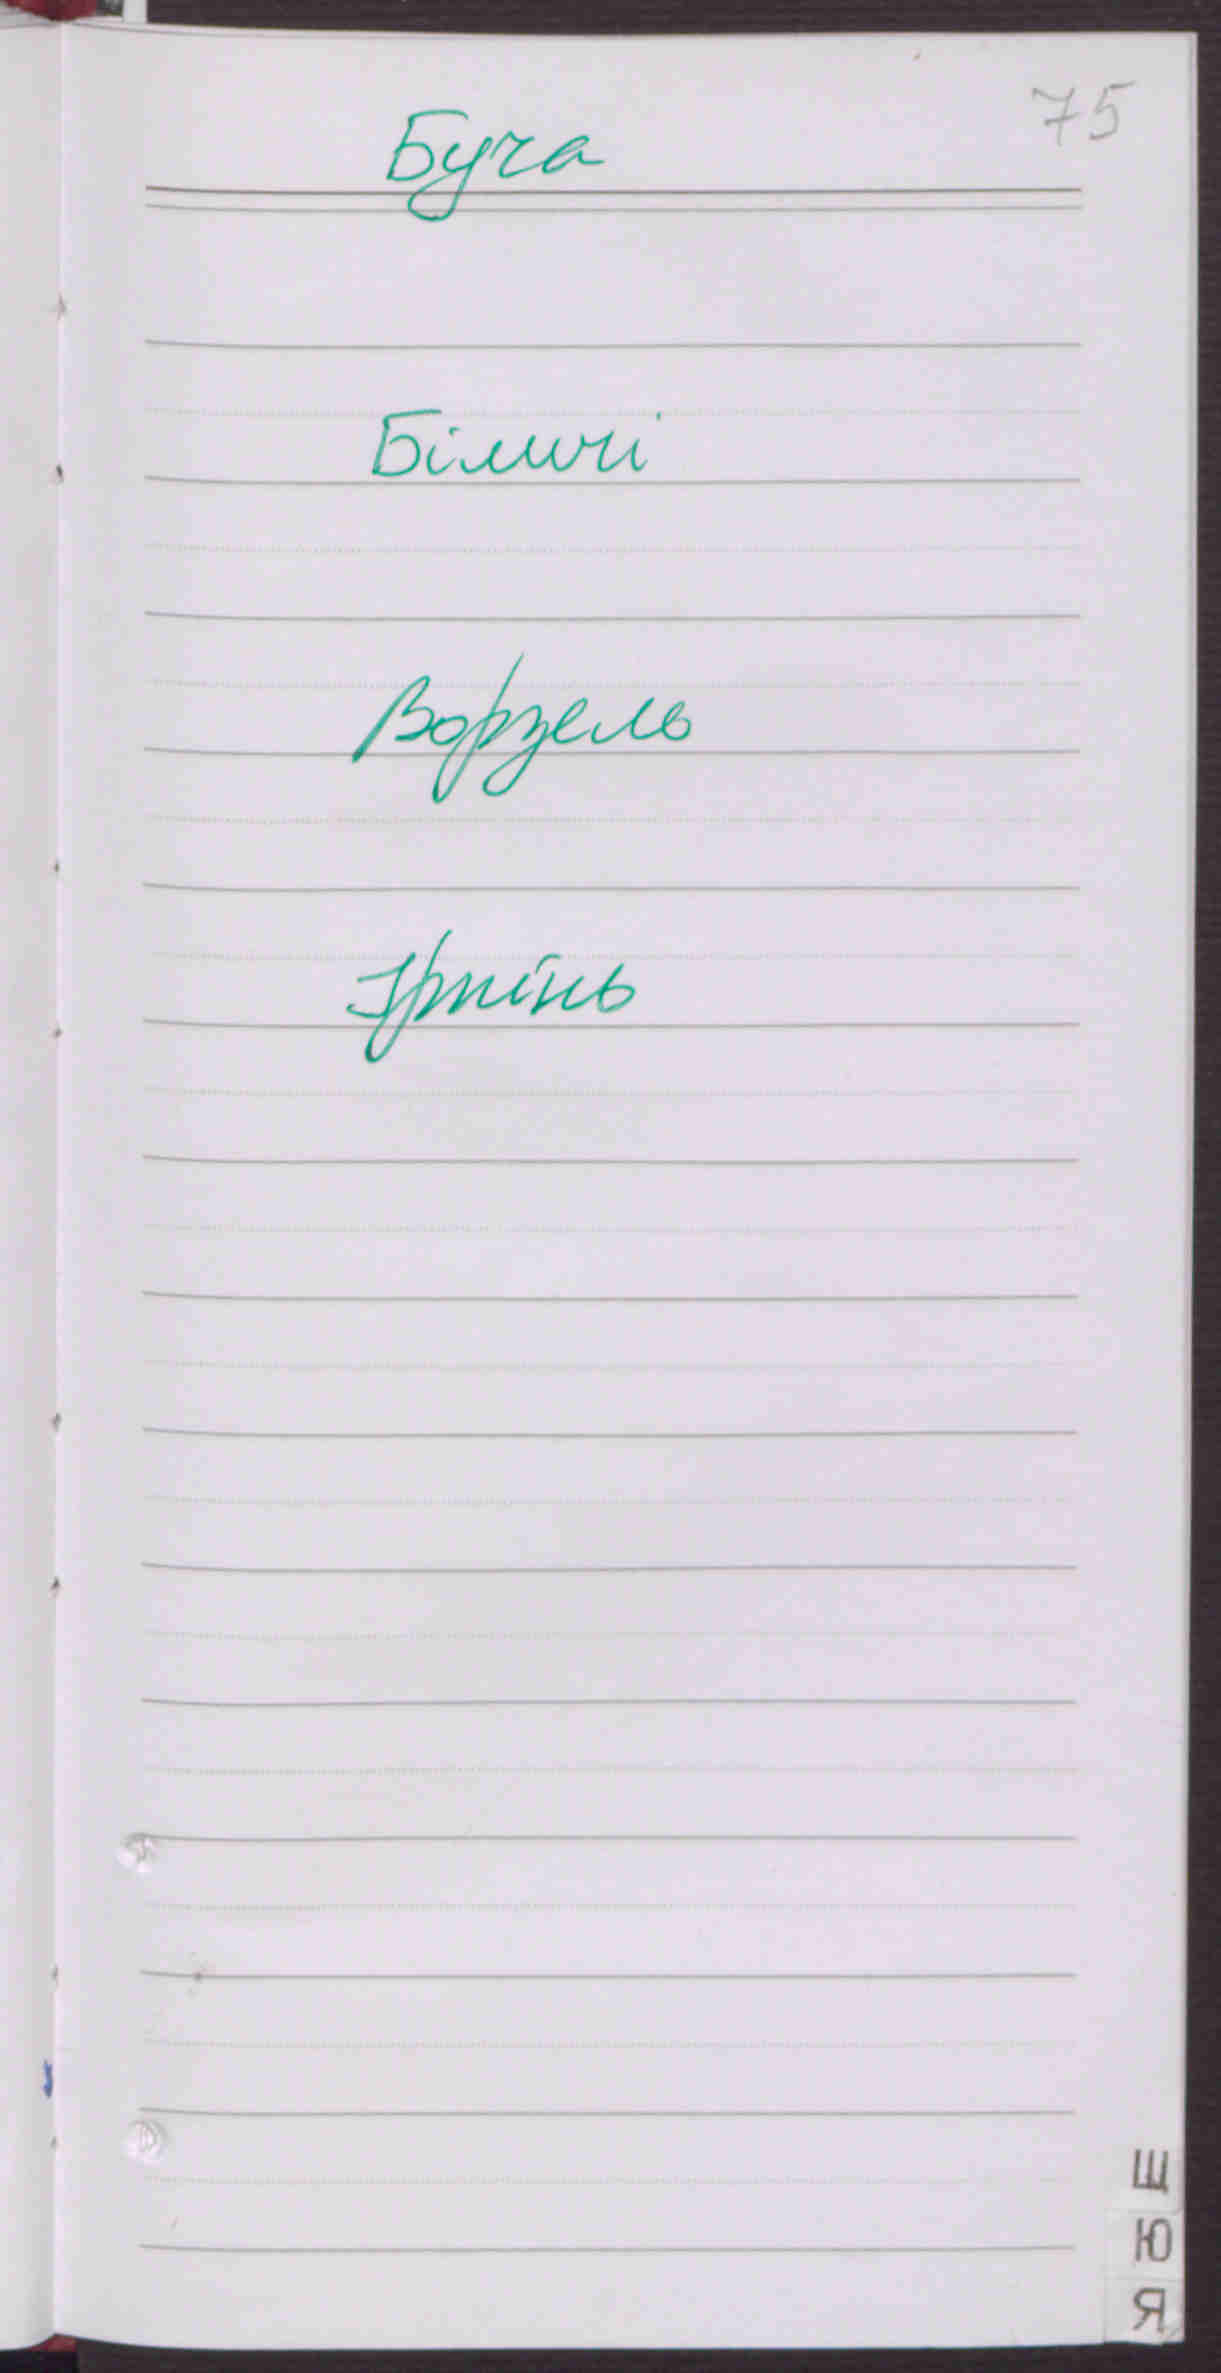 75
Буча
Біличі
Ворзель
Ірпінь
Щ
Ю
Я